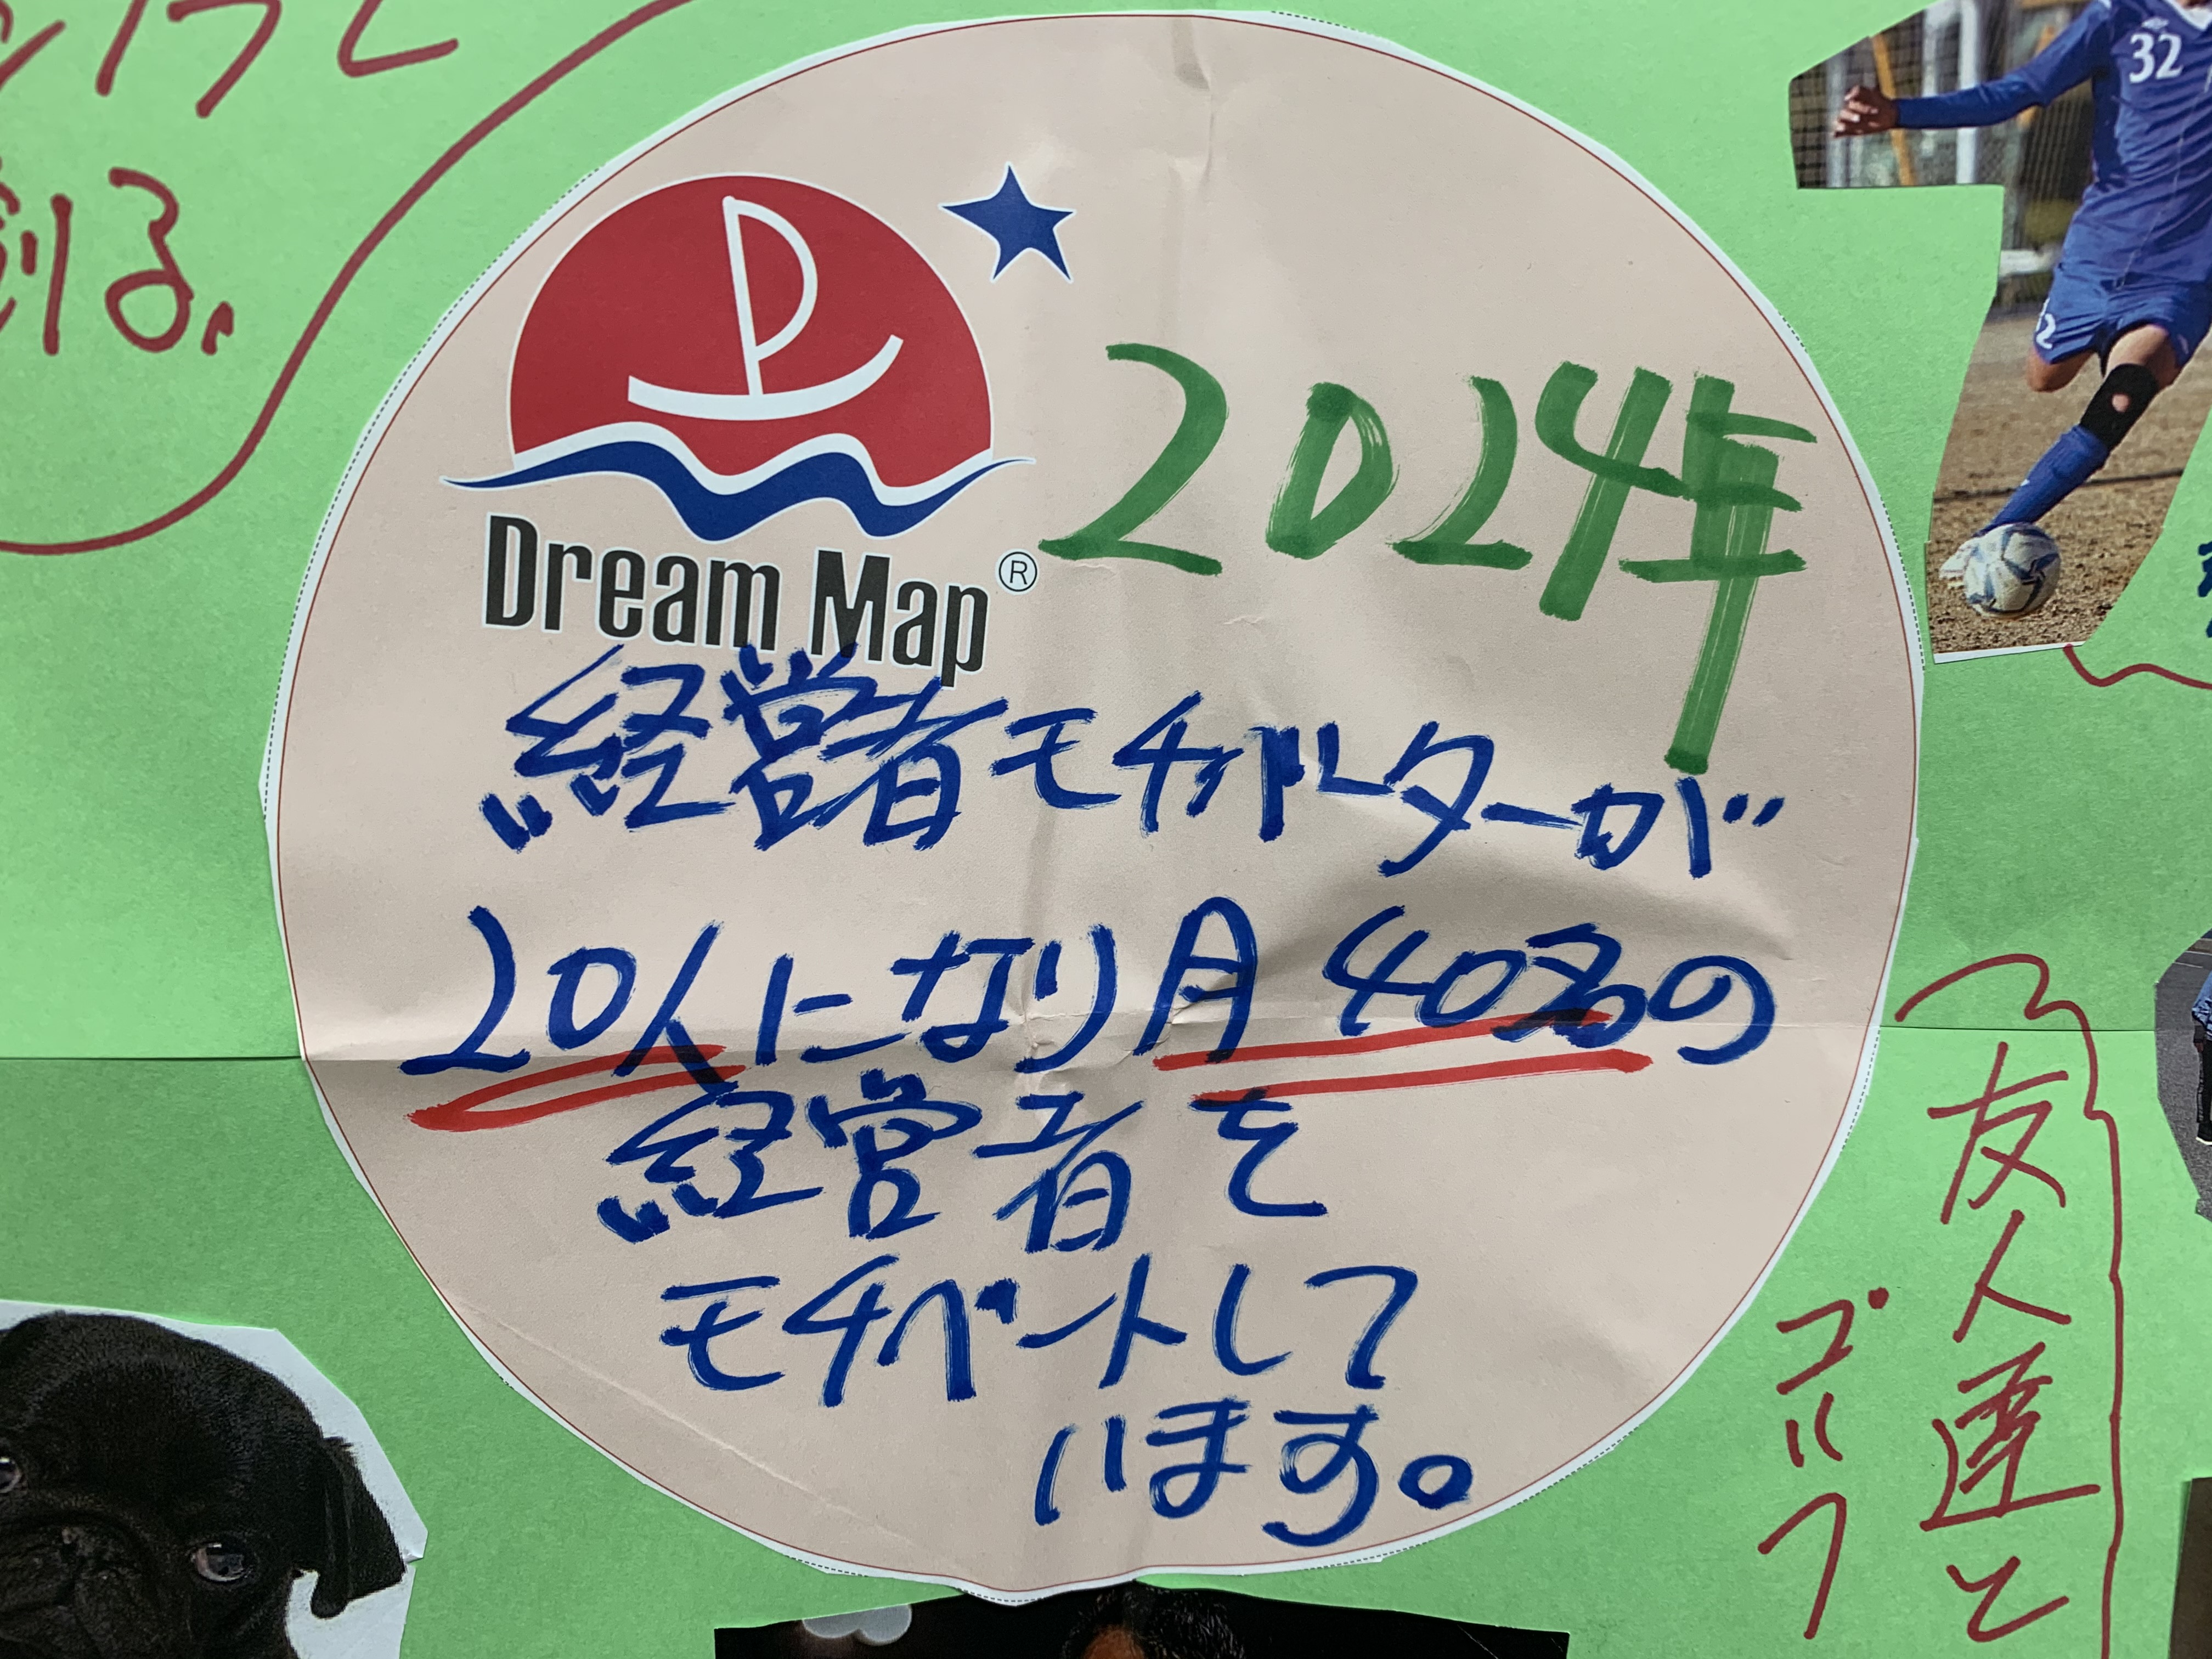 る。
32
Dream Map®
2024年
経営者モチベーターが
20人になり月40名の
経営者を
モチベートして
います。
友人達と
ゴルフ